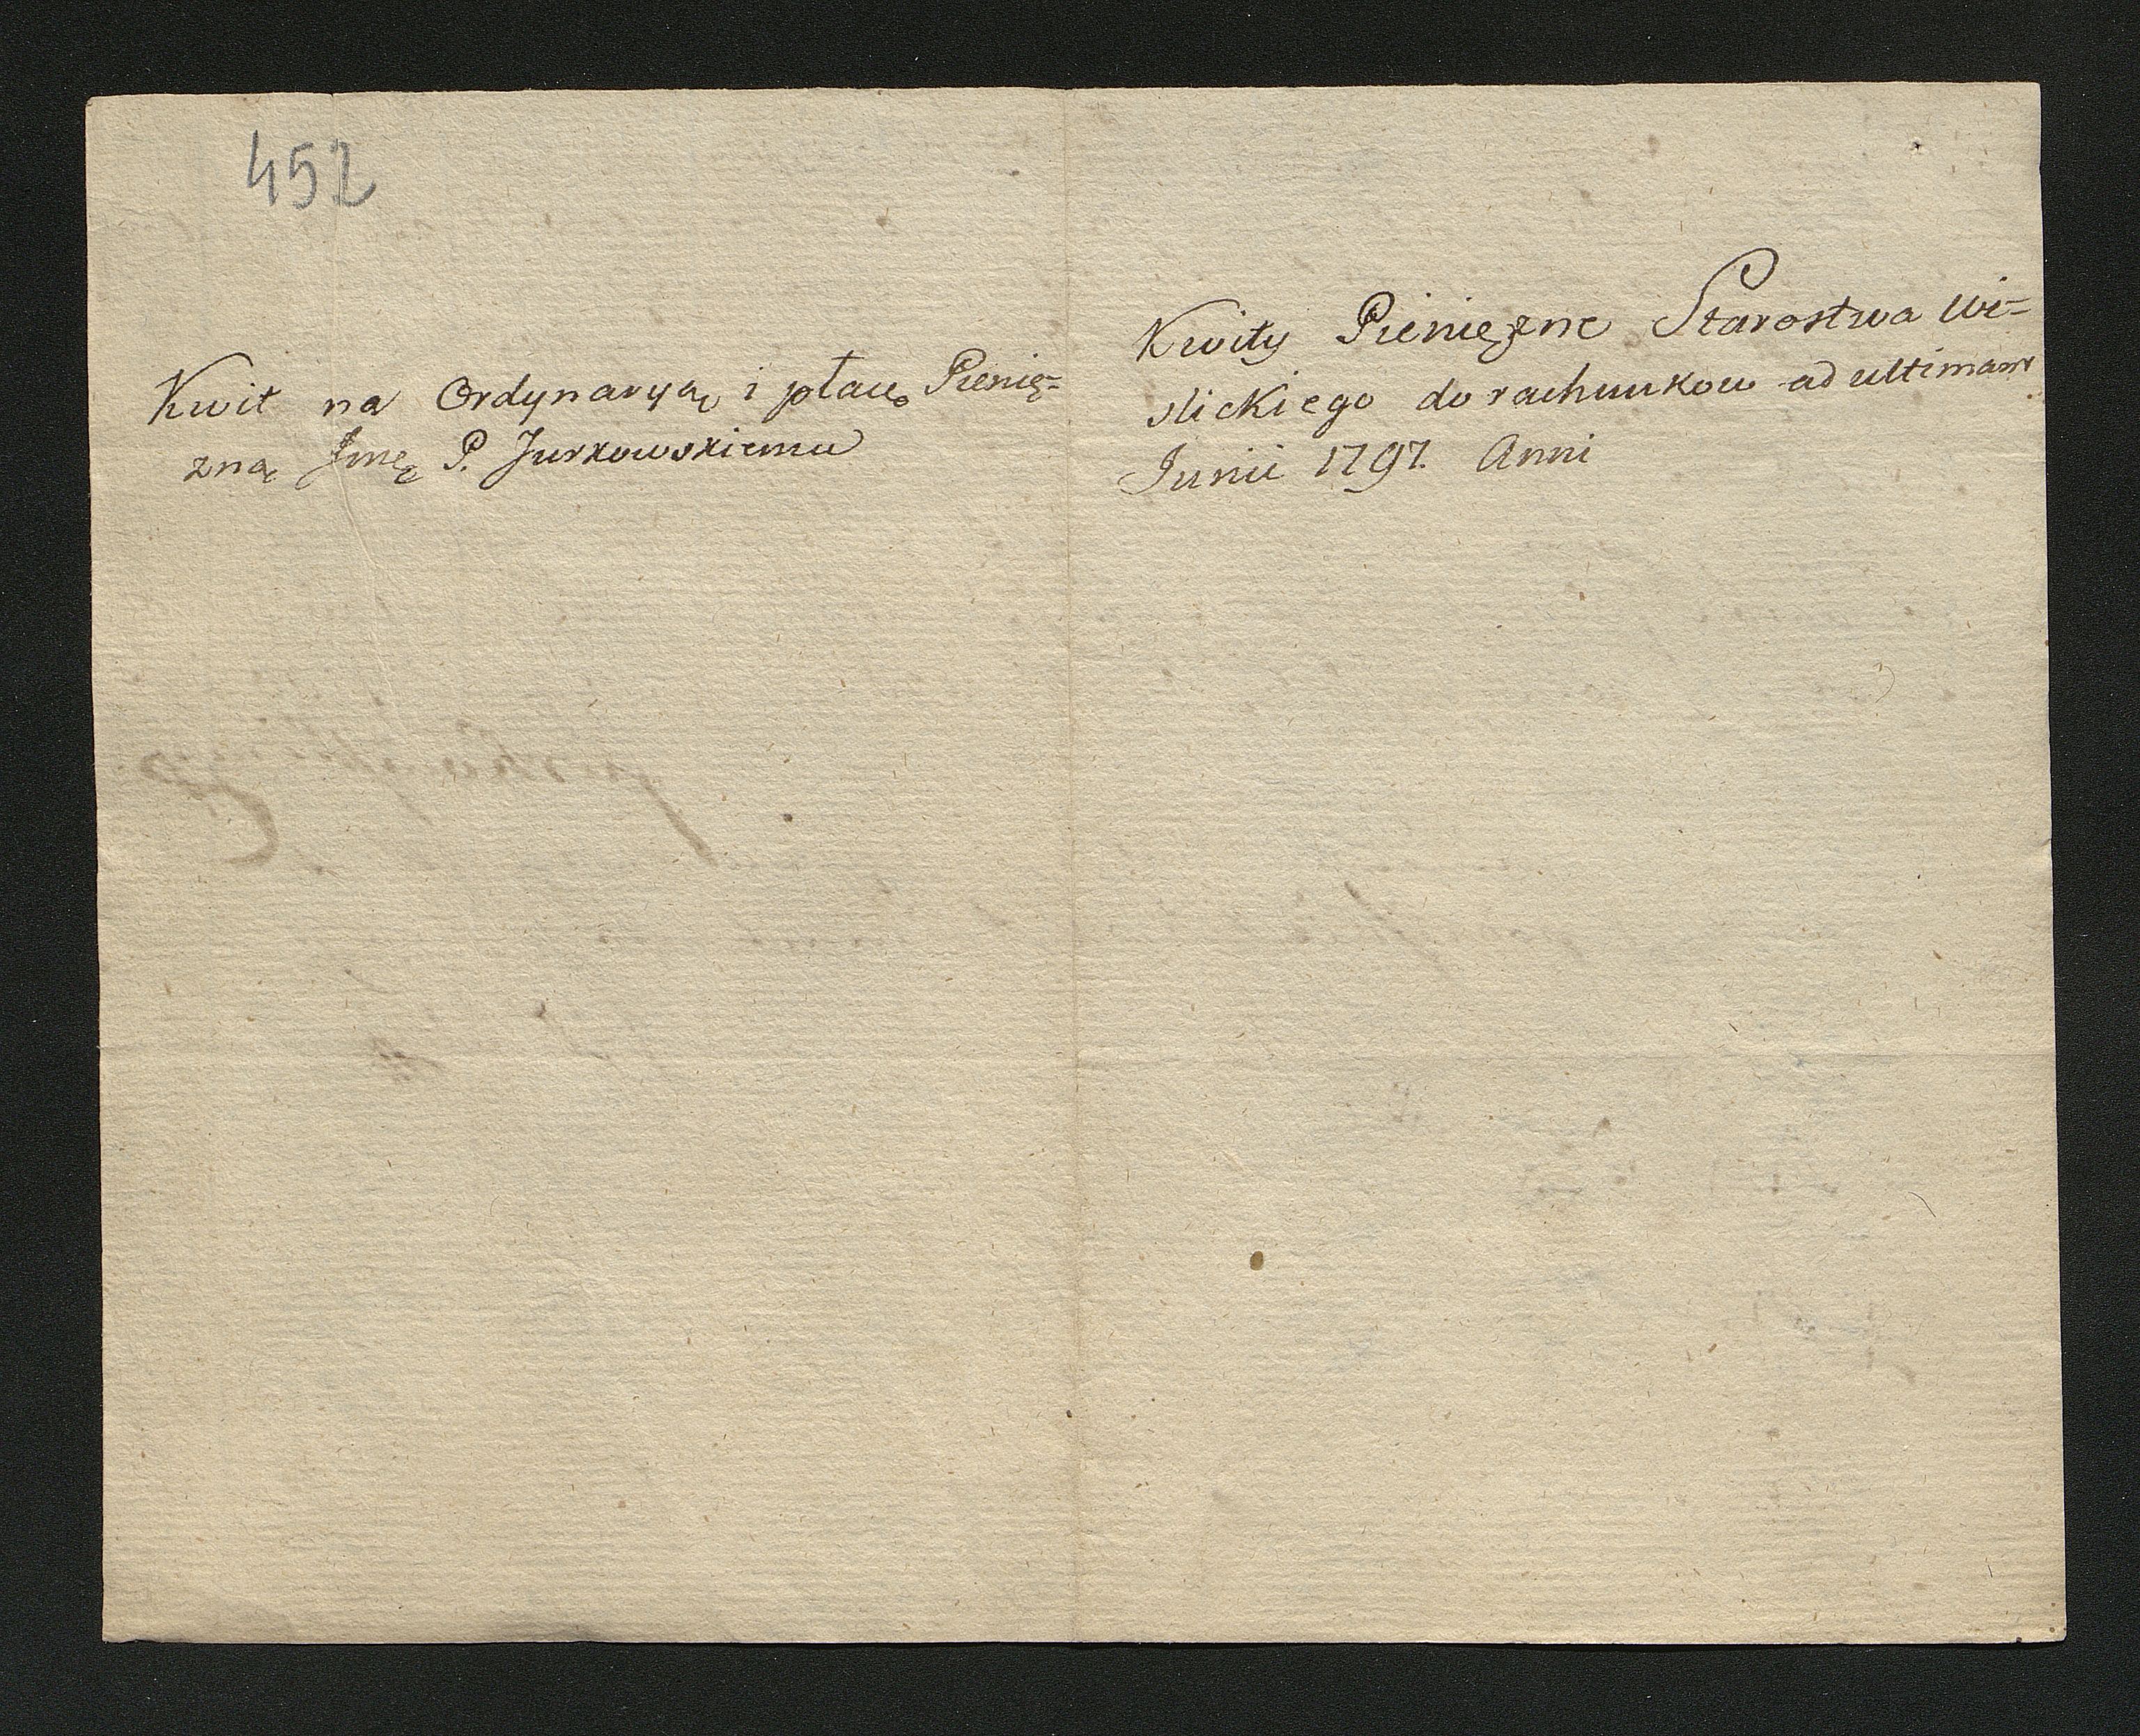 452
Kwit na Ordynaryą i płacę Pienię-
zną Jmę P. Jurkowskiemu
Kwity Pieniężne Starostwa Wi-
slickiego do rachunkow ad ultimam
Junii 1797. Anni